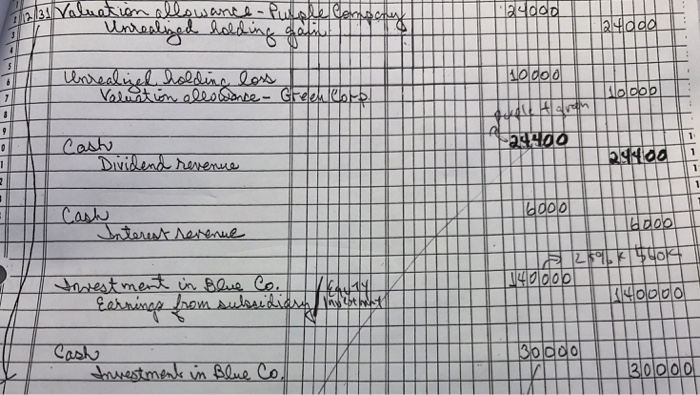 12/31 Valuation allowance - Purple Company 24000
Unrealized holding gain 24000
Unrealized holding loss 10000
Valuation allowance - Green Corp. 10000
purple + green
Cash 24400
Dividend revenue 24400
Cash 6000
Interest revenue 6000
25% x $560K
Investment in Blue Co. 140000
Earnings from subsidiary / Equity Investment 140000
Cash 30000
Investment in Blue Co. 30000